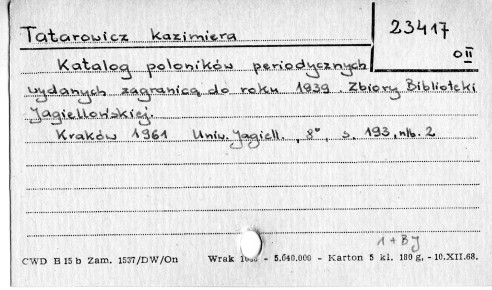 Tatarowicz Kazimiera
23417
O II
Katalog poloników periodycznych
wydanych zagranicą do roku 1939. Zbiory Biblioteki
Jagiellońskiej.
Kraków 1961 Uniw. Jagiell., 8°, s. 193, nlb. 2
1 + BJ
CWD B 15 b Zam. 1537/DW/On Wrak - 5.040.000 - Karton 5 kl. 180 g, - 10.XII.68.